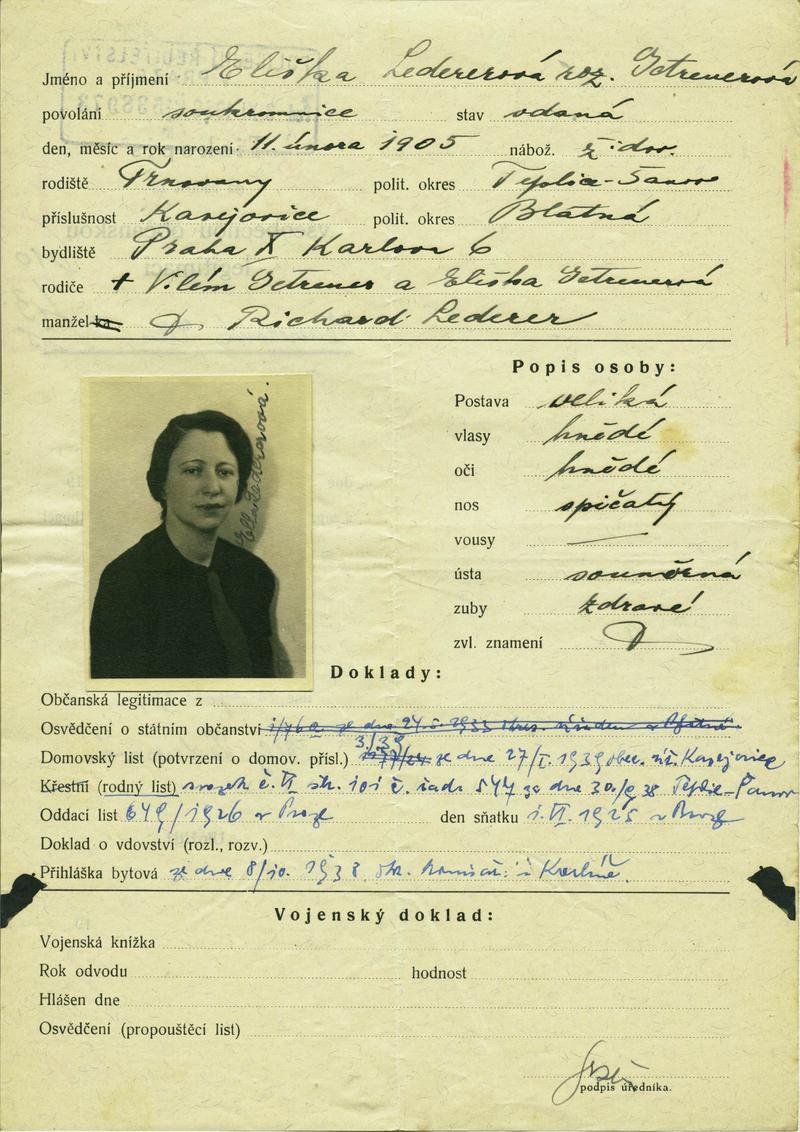 Jméno a příjmení Eliška Ledererová roz. Getreuerová
povolání soukromnice stav vdaná
den, měsíc a rok narození 11. února 1905 nábož. židov.
rodiště Trnovany polit. okres Teplice-Šanov
příslušnost Kasejovice polit. okres Blatná
bydliště Praha X Karlova 6
rodiče + Vilém Getreuer a Eliška Getreuerová
manžel-ka Richard Lederer
Popis osoby:
Postava veliká
vlasy hnědé
oči hnědé
nos spičatý
vousy —
ústa souměrná
zuby zdravé
zvl. znamení
Ella Ledererová.
Doklady:
Občanská legitimace z
Osvědčení o státním občanství
Domovský list (potvrzení o domov. přísl.) 3/39 ze dne 27/I. 1939 obec. úř. Kasejovice
Křestní (rodný list) svazek č. VI str. 101 č. řada 547 ze dne 30./9 38 Teplic-Šanov
Oddací list 649/1926 v Praze den sňatku 1. VI. 1925 v Praze
Doklad o vdovství (rozl., rozv.)
Přihláška bytová ze dne 8/10. 1938 v Karlíně.
Vojenský doklad:
Vojenská knížka
Rok odvodu hodnost
Hlášen dne
Osvědčení (propouštěcí list)
podpis úředníka.